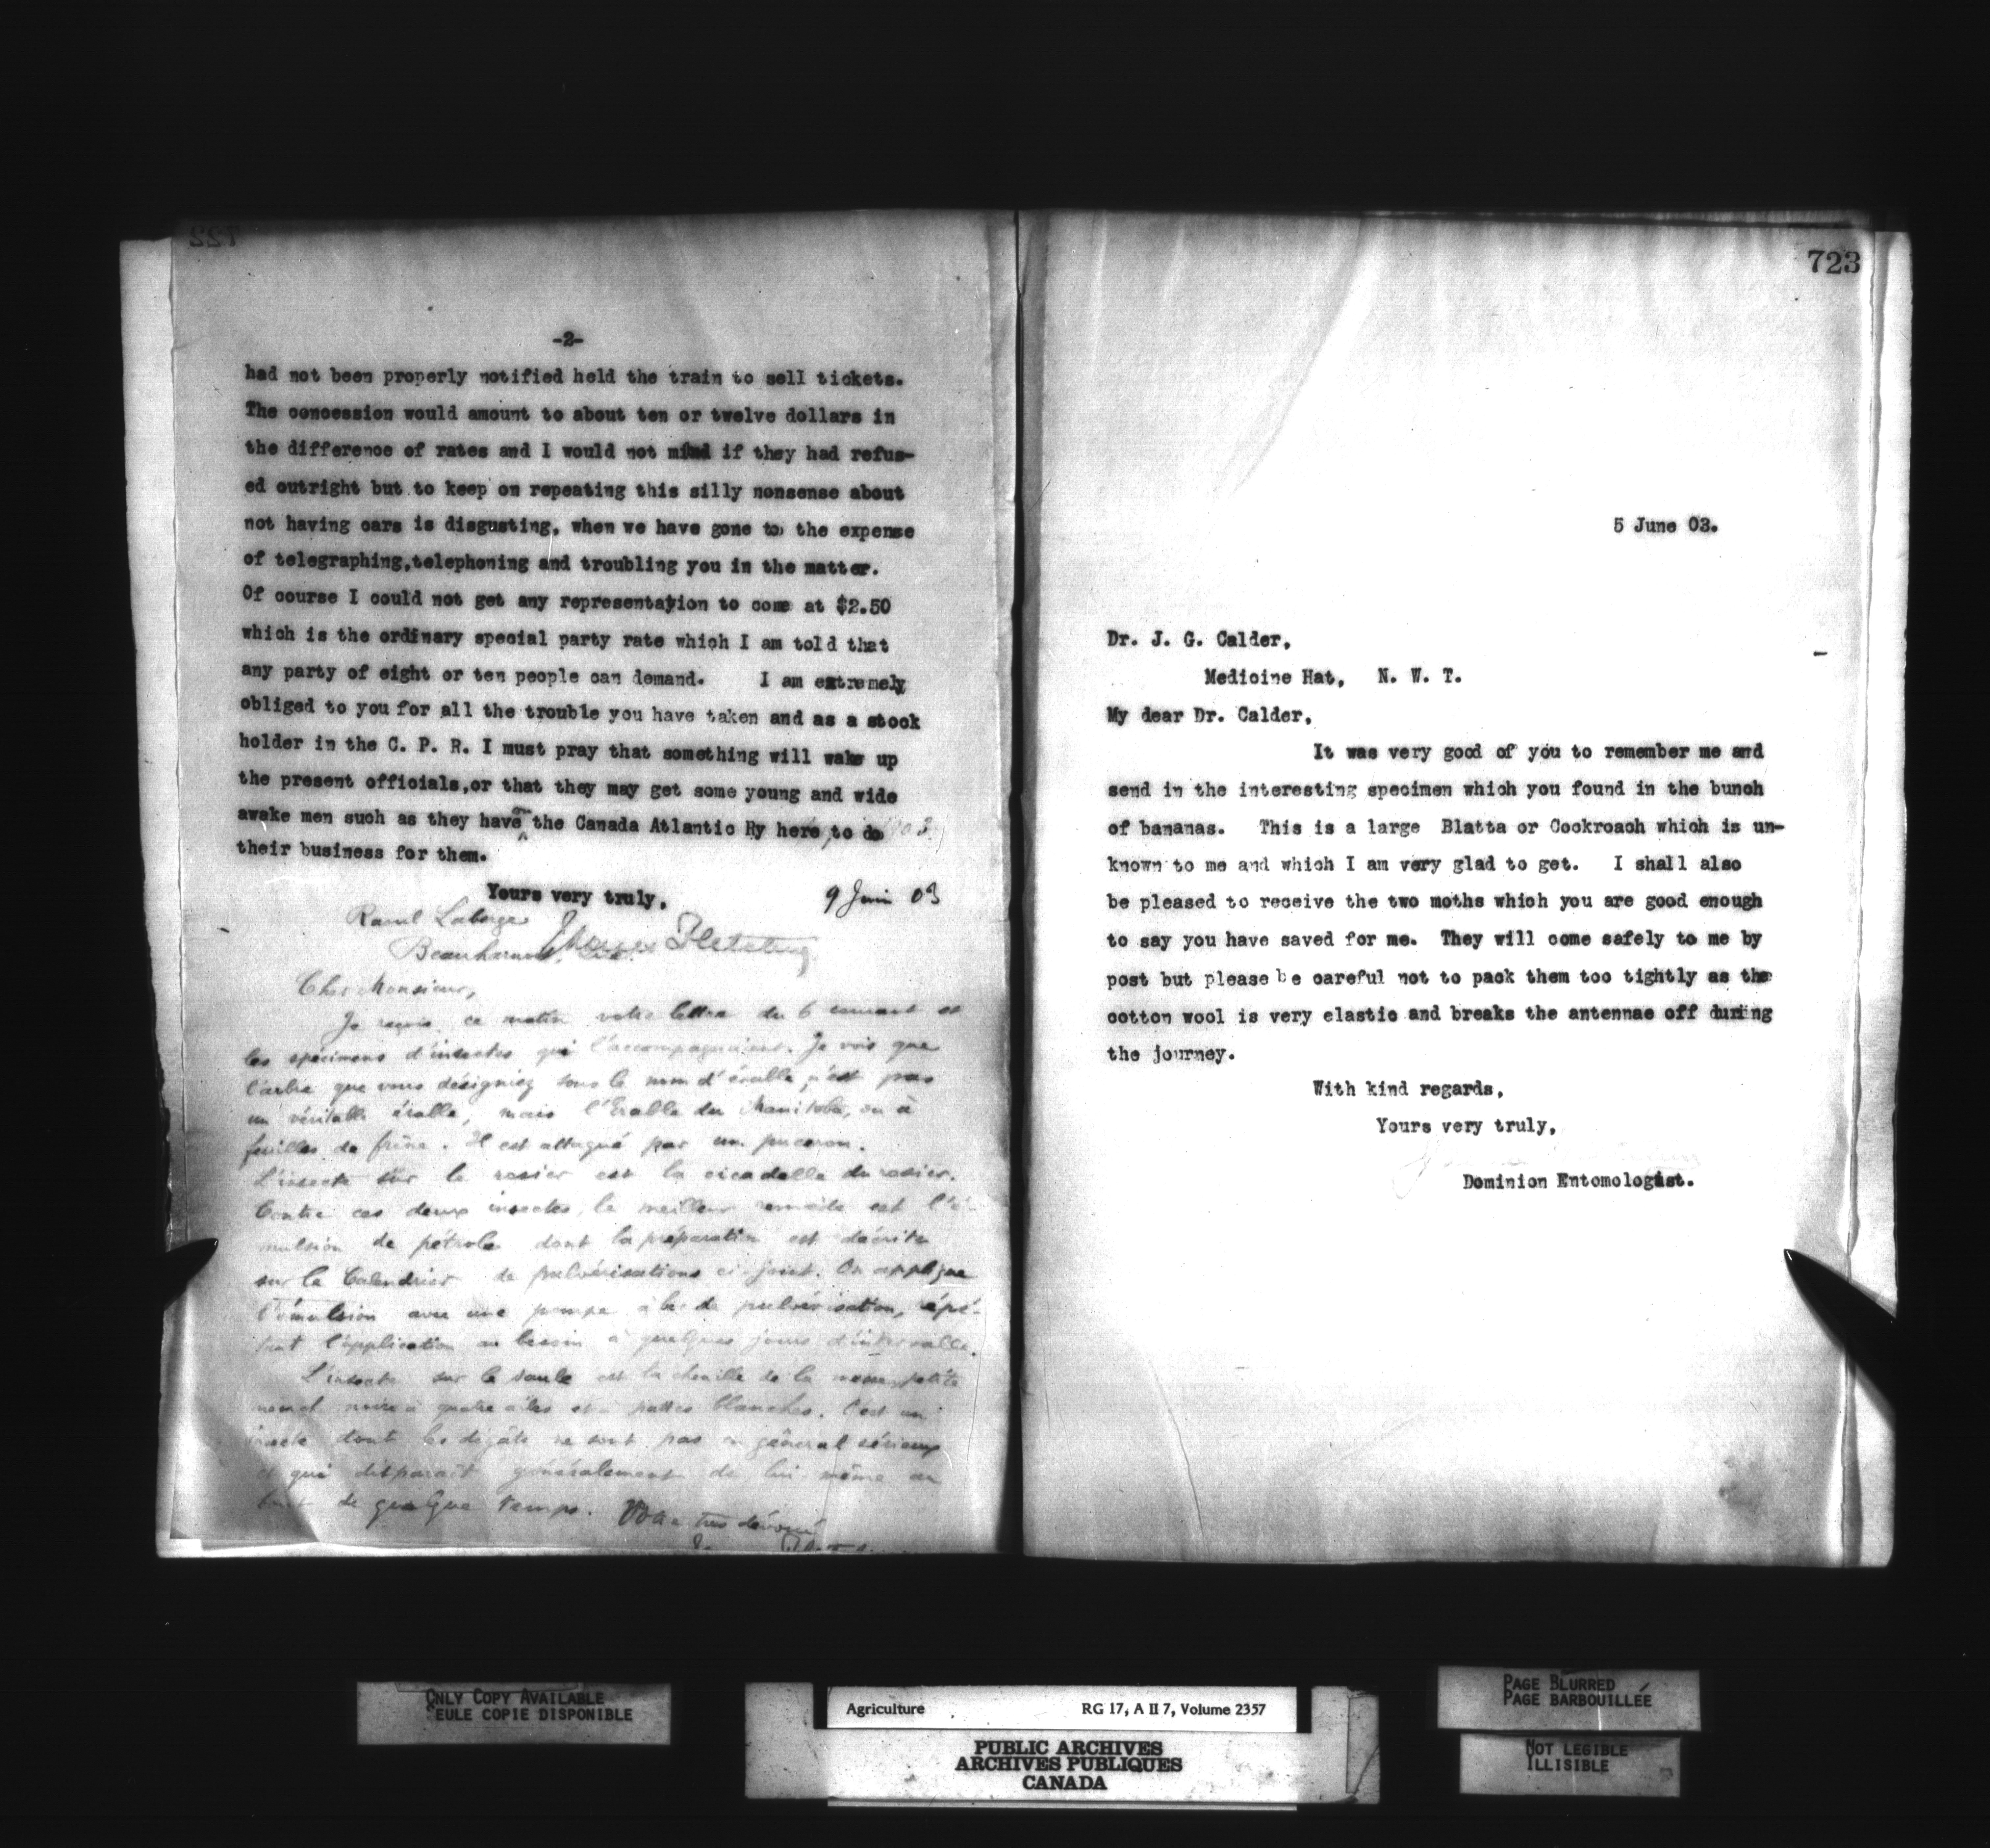 722
-2-
had not been properly notified held the train to sell tickets.
The concession would amount to about ten or twelve dollars in
the difference of rates and I would not mind if they had refus-
ed outright but to keep on repeating this silly nonsense about
not having cars is disgusting, when we have gone to the expense
of telegraphing,telephoning and troubling you in the matter.
Of course I could not get any representation to come at $2.50
which is the ordinary special party rate which I am told that
any party of eight or ten people can demand. I am extremely
obliged to you for all the trouble you have taken and as a stock
holder in the C. P. R. I must pray that something will wake up
the present officials,or that they may get some young and wide
awake men such as they have the Canada Atlantic Ry here, to do
their business for them.
Yours very truly,
9 Juin 03
Raoul Laberge
Beauharnois,
James Fletcher
Cher Monsieur,
Je reçois ce matin votre lettre du 6 courant et
les spécimens d'insectes qui l'accompagnaient. Je vois que
l'arbre que vous désignez sous le nom d'érable, n'est pas
un véritable érable, mais l'Erable du Manitoba, ou à
feuilles de frêne. Il est attaqué par un puceron.
L'insecte sur le rosier est la cicadelle du rosier.
Contre ces deux insectes, le meilleur remède est l'é-
mulsion de pétrole dont la préparation est décrite
sur le Calendrier de pulvérisations ci-joint. On applique
l'émulsion avec une pompe à bec de pulvérisation, répé-
tant l'application au besoin à quelques jours d'intervalle.
L'insecte sur le saule est la chenille de la petite
noire à quatre ailes et à pattes blanches. C'est un
insecte dont les dégâts ne sont pas en général sérieux
et qui disparaît généralement de lui-même au
bout de quelque temps. Votre très dévoué
723
5 June 03.
Dr. J. G. Calder,
Medicine Hat, N. W. T.
My dear Dr. Calder,
It was very good of you to remember me and
send in the interesting specimen which you found in the bunch
of bananas. This is a large Blatta or Cockroach which is un-
known to me and which I am very glad to get. I shall also
be pleased to receive the two moths which you are good enough
to say you have saved for me. They will come safely to me by
post but please be careful not to pack them too tightly as the
cotton wool is very elastic and breaks the antennae off during
the journey.
With kind regards,
Yours very truly,
Dominion Entomologist.
ONLY COPY AVAILABLE
SEULE COPIE DISPONIBLE
Agriculture RG 17, A II 7, Volume 2357
PUBLIC ARCHIVES
ARCHIVES PUBLIQUES
CANADA
PAGE BLURRED
PAGE BARBOUILLÉE
NOT LEGIBLE
ILLISIBLE